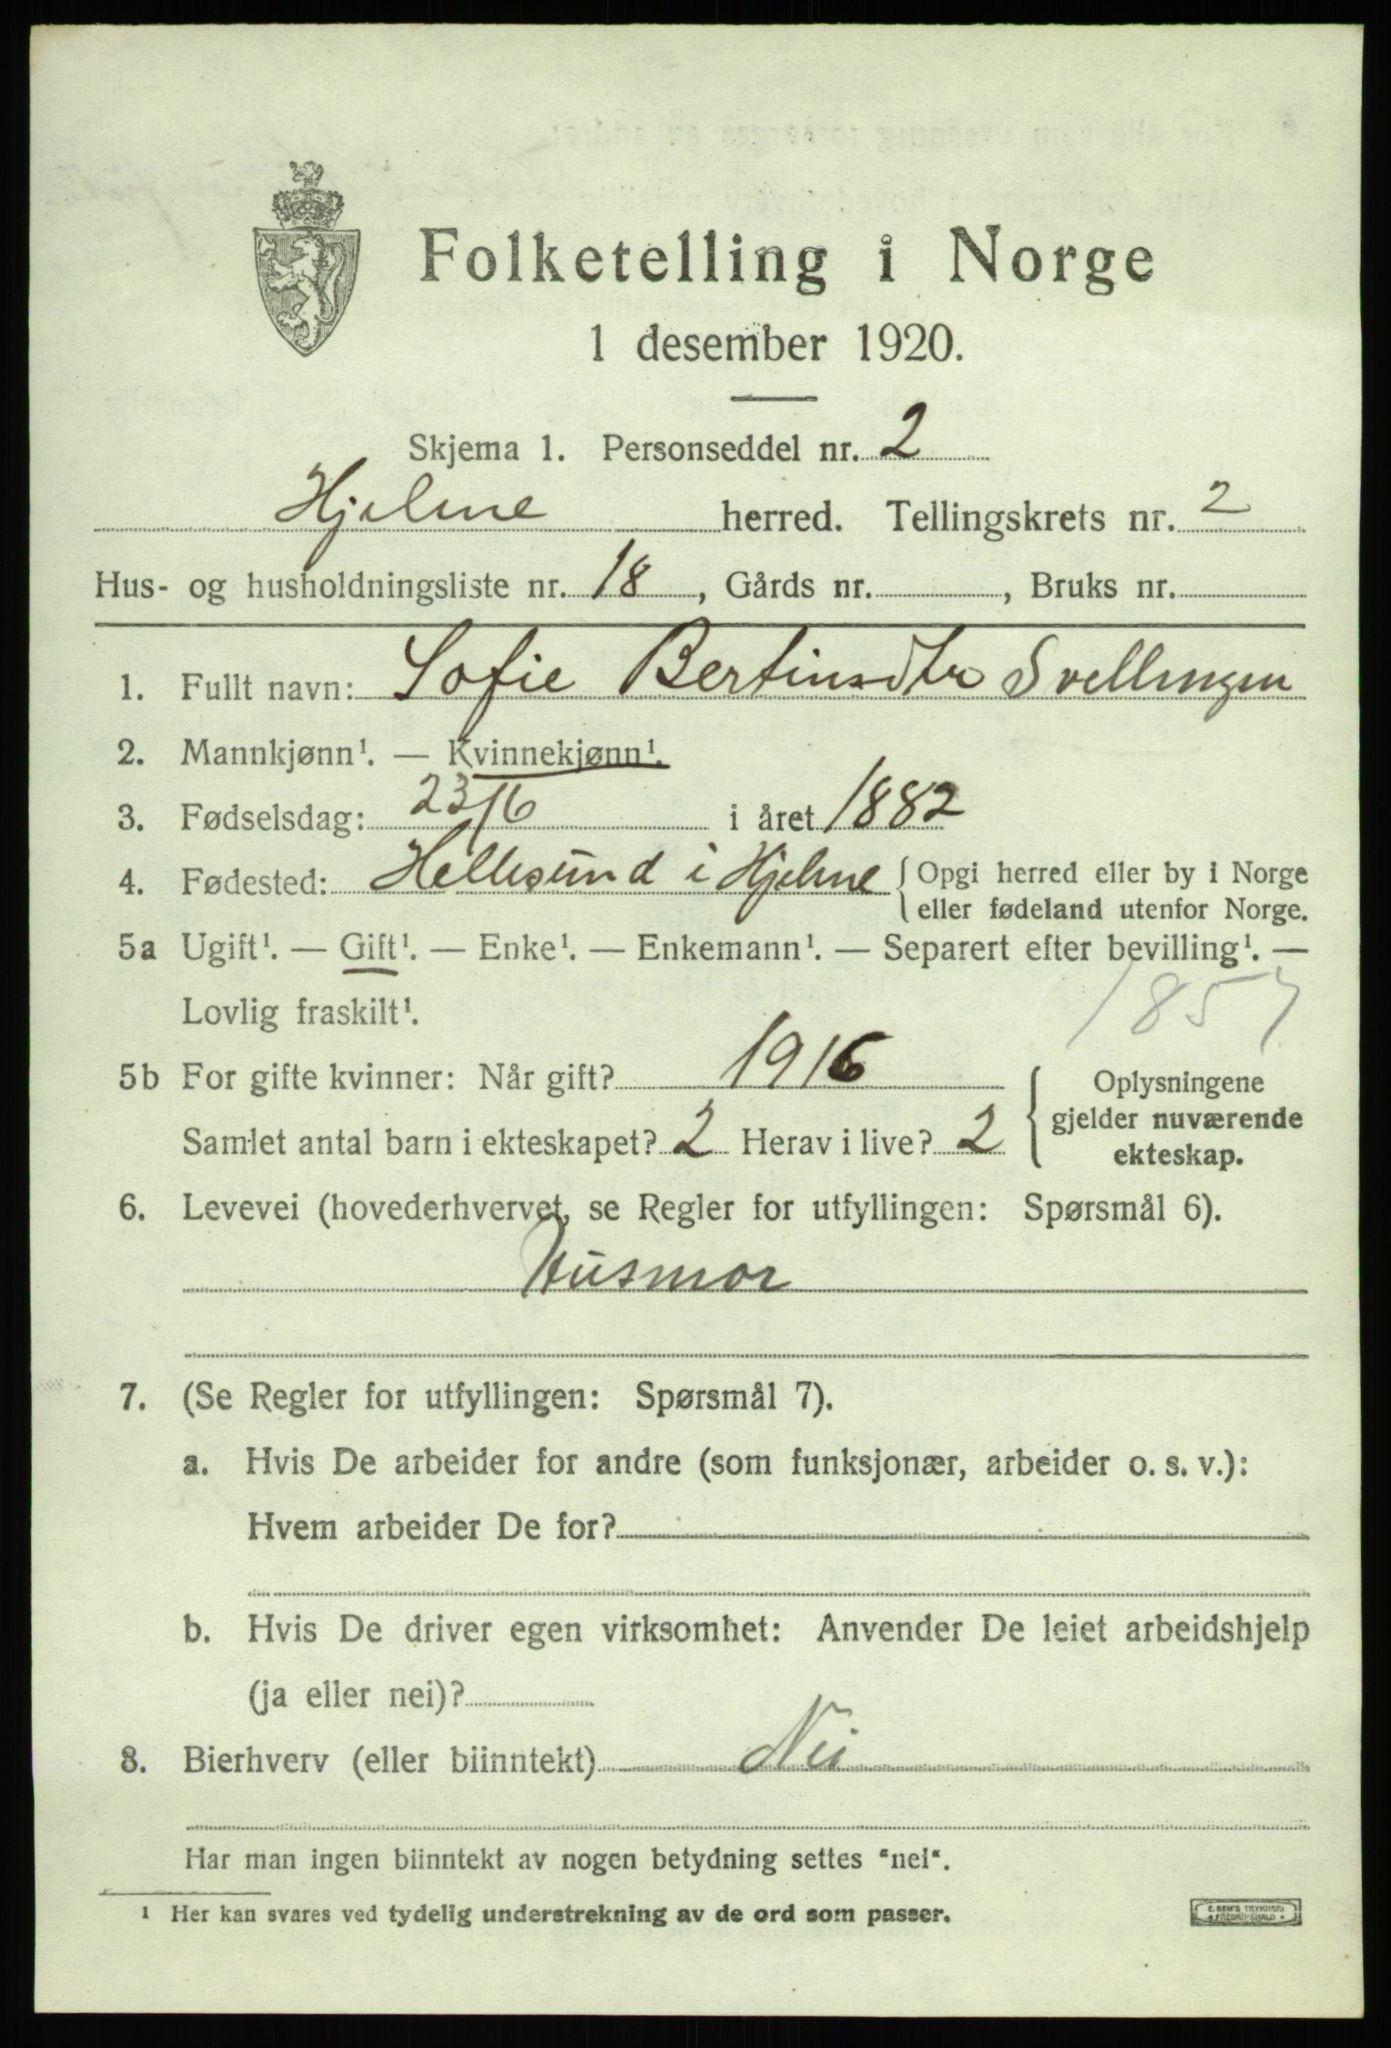 Folketelling i Norge
1 desember 1920.
Skjema 1. Personseddel nr. 2
Hjelme herred. Tellingskrets nr. 2
Hus- og husholdningsliste nr. 18, Gårds nr. , Bruks nr.
1. Fullt navn: Sofie Bertinsdtr Svellingen
2. Mannkjønn¹. — Kvinnekjønn¹.
3. Fødselsdag: 23/6 i året 1882
4. Fødested: Hellesund i Hjelme { Opgi herred eller by i Norge
eller fødeland utenfor Norge.
5a Ugift¹. — Gift¹. — Enke¹. — Enkemann¹. — Separert efter bevilling¹. —
Lovlig fraskilt¹. 1857
5b For gifte kvinner: Når gift? 1916 { Oplysningene
gjelder nuværende
Samlet antal barn i ekteskapet? 2 Herav i live? 2
ekteskap.
6. Levevei (hovederhvervet, se Regler for utfyllingen: Spørsmål 6).
Husmor
7. (Se Regler for utfyllingen: Spørsmål 7).
a. Hvis De arbeider for andre (som funksjonær, arbeider o. s. v.):
Hvem arbeider De for?
b. Hvis De driver egen virksomhet: Anvender De leiet arbeidshjelp
(ja eller nei)?
8. Bierhverv (eller biinntekt) Nei
Har man ingen biinntekt av nogen betydning settes "nei".
¹ Her kan svares ved tydelig understrekning av de ord som passer.